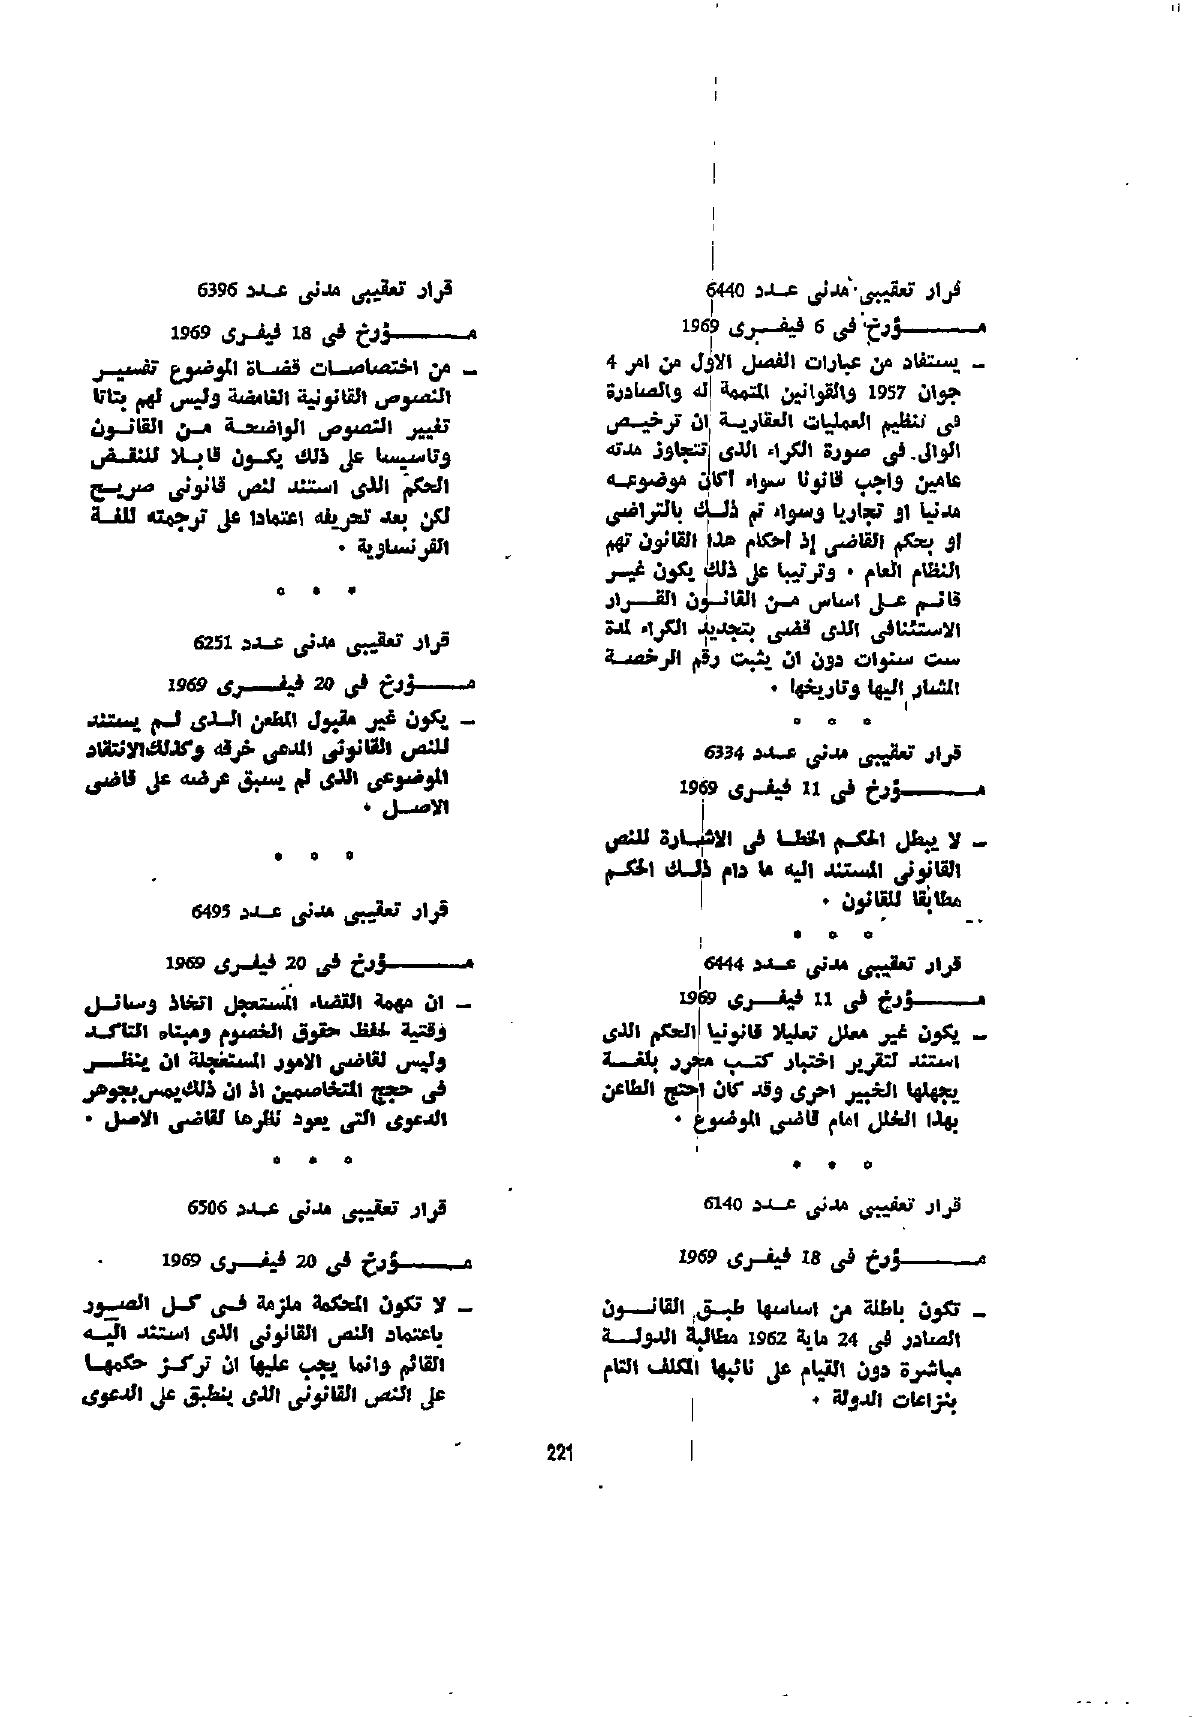 قرار تعقيبى مدنى عـدد 6440
مـــؤرخ فى 6 فيفـرى 1969
– يستفاد من عبارات الفصل الاول من امر 4
جوان 1957 والقوانين المتممة له والصادرة
فى تنظيم العمليات العقاريـة ان ترخيـص
الوالى فى صورة الكراء الذى تتجاوز مدته
عامين واجب قانونا سواء أكان موضوعـه
مدنيا او تجاريا وسواء تم ذلـك بالتراضى
او بحكم القاضى إذ أحكام هذا القانون تهم
النظام العام • وترتيبا على ذلك يكون غيـر
قائـم علـى اساس مـن القانـون القـرار
الاستئنافى الذى قضى بتجديد الكراء لمدة
ست سنوات دون ان يثبت رقم الرخصـة
المشار اليها وتاريخها •
° ° °
قرار تعقيبى مدنى عـدد 6334
مـــؤرخ فى 11 فيفـرى 1969
– لا يبطل الحكـم الخطـا فى الاشـارة للنص
القانونى المستند اليه ما دام ذلـك الحكـم
مطابقا للقانون •
° ° °
قرار تعقيبى مدنى عـدد 6444
مـــؤرخ فى 11 فيفـرى 1969
– يكون غير معلل تعليلا قانونيا الحكم الذى
استند لتقرير اختبار كتـب مجرد بلغـة
يجهلها الخبير احرى وقد كان احتج الطاعن
بهذا الخلل امام قاضى الموضوع •
° ° °
قرار تعقيبى مدنى عـدد 6140
مـــؤرخ فى 18 فيفـرى 1969
– تكون باطلة من اساسها طبـق القانـون
الصادر فى 24 ماية 1962 مطالبة الدولـة
مباشرة دون القيام على نائبها المكلف التام
بنزاعات الدولة •
قرار تعقيبى مدنى عـدد 6396
مـــؤرخ فى 18 فيفـرى 1969
– من اختصاصـات قضـاة الموضوع تفسيـر
النصوص القانونية الغامضة وليس لهم بتاتا
تغيير النصوص الواضحـة مـن القانـون
وتاسيسا على ذلك يكـون قابـلا للنقـض
الحكم الذى استند لنص قانونى صريـح
لكن بعد تحريفه اعتمادا على ترجمته للغـة
الفرنساوية •
° ° °
قرار تعقيبى مدنى عـدد 6251
مـــؤرخ فى 20 فيفـرى 1969
– يكون غير مقبول المطعن الـذى لـم يستند
للنص القانونى المدعى خرقه وكذلك الانتقاد
الموضوعى الذى لم يسبق عرضه على قاضى
الاصـل •
° ° °
قرار تعقيبى مدنى عـدد 6495
مـــؤرخ فى 20 فيفـرى 1969
– ان مهمة القضاء المستعجل اتخاذ وسائـل
وقتية لحفظ حقوق الخصوم ومبناه التاكـد
وليس لقاضى الامور المستعجلة ان ينظـر
فى حجج المتخاصمين اذ ان ذلك يمس بجوهر
الدعوى التى يعود نظرها لقاضى الاصل •
° ° °
قرار تعقيبى مدنى عـدد 6506
مـــؤرخ فى 20 فيفـرى 1969
– لا تكون المحكمة ملزمة فـى كـل الصـور
باعتماد النص القانونى الذى استند اليـه
القائم وانما يجب عليها ان تركـز حكمهـا
على النص القانونى الذى ينطبق على الدعوى
221